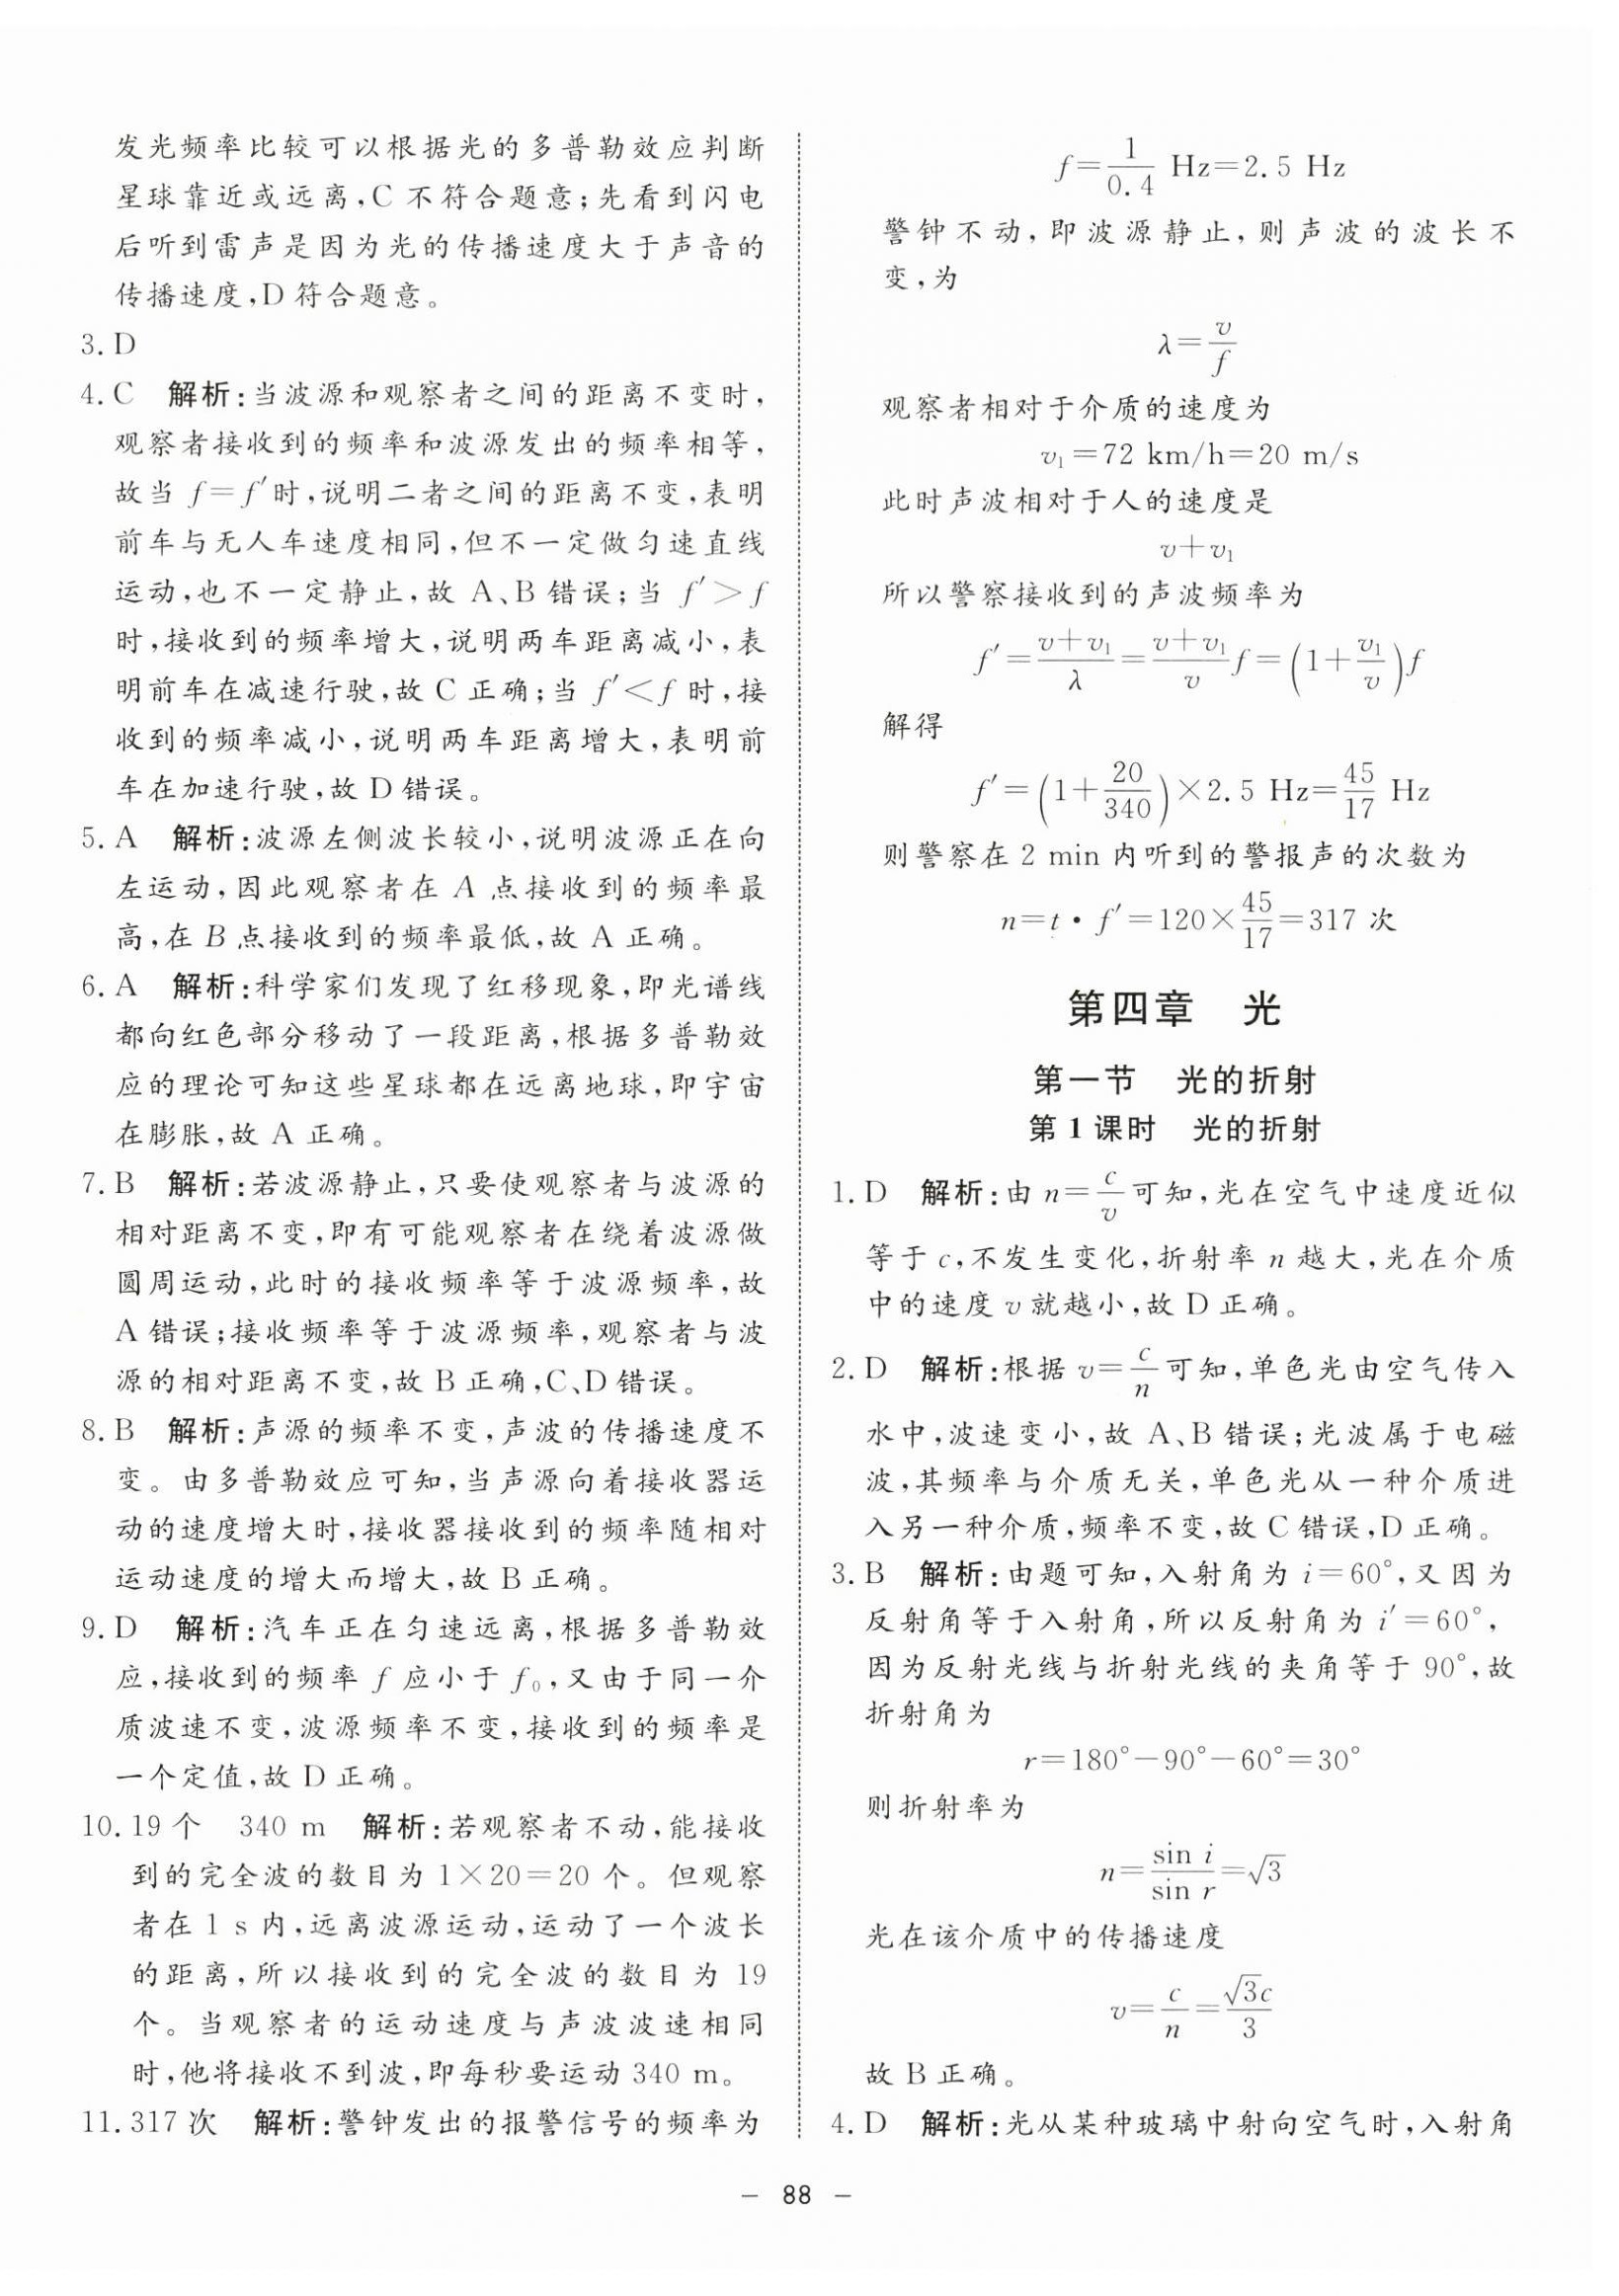 发光频率比较可以根据光的多普勒效应判断
星球靠近或远离,C 不符合题意;先看到闪电
后听到雷声是因为光的传播速度大于声音的
传播速度,D 符合题意。
3. D
4. C 解析:当波源和观察者之间的距离不变时,
观察者接收到的频率和波源发出的频率相等,
故当 f=f′时,说明二者之间的距离不变,表明
前车与无人车速度相同,但不一定做匀速直线
运动,也不一定静止,故 A、B 错误;当 f′>f
时,接收到的频率增大,说明两车距离减小,表
明前车在减速行驶,故 C 正确;当 f′<f 时,接
收到的频率减小,说明两车距离增大,表明前
车在加速行驶,故 D 错误。
5. A 解析:波源左侧波长较小,说明波源正在向
左运动,因此观察者在 A 点接收到的频率最
高,在 B 点接收到的频率最低,故 A 正确。
6. A 解析:科学家们发现了红移现象,即光谱线
都向红色部分移动了一段距离,根据多普勒效
应的理论可知这些星球都在远离地球,即宇宙
在膨胀,故 A 正确。
7. B 解析:若波源静止,只要使观察者与波源的
相对距离不变,即有可能观察者在绕着波源做
圆周运动,此时的接收频率等于波源频率,故
A 错误;接收频率等于波源频率,观察者与波
源的相对距离不变,故 B 正确,C、D 错误。
8. B 解析:声源的频率不变,声波的传播速度不
变。由多普勒效应可知,当声源向着接收器运
动的速度增大时,接收器接收到的频率随相对
运动速度的增大而增大,故 B 正确。
9. D 解析:汽车正在匀速远离,根据多普勒效
应,接收到的频率 f 应小于 f₀,又由于同一介
质波速不变,波源频率不变,接收到的频率是
一个定值,故 D 正确。
10. 19 个 340 m 解析:若观察者不动,能接收
到的完全波的数目为 1×20=20 个。但观察
者在 1 s 内,远离波源运动,运动了一个波长
的距离,所以接收到的完全波的数目为 19
个。当观察者的运动速度与声波波速相同
时,他将接收不到波,即每秒要运动 340 m。
11. 317 次 解析:警钟发出的报警信号的频率为
f=1/0.4 Hz=2.5 Hz
警钟不动,即波源静止,则声波的波长不
变,为
λ=v/f
观察者相对于介质的速度为
v₁=72 km/h=20 m/s
此时声波相对于人的速度是
v+v₁
所以警察接收到的声波频率为
f′=(v+v₁)/λ=(v+v₁)/v f=(1+v₁/v)f
解得
f′=(1+20/340)×2.5 Hz=45/17 Hz
则警察在 2 min 内听到的警报声的次数为
n=t·f′=120×45/17=317 次
第四章 光
第一节 光的折射
第 1 课时 光的折射
1. D 解析:由 n=c/v 可知,光在空气中速度近似
等于 c,不发生变化,折射率 n 越大,光在介质
中的速度 v 就越小,故 D 正确。
2. D 解析:根据 v=c/n 可知,单色光由空气传入
水中,波速变小,故 A、B 错误;光波属于电磁
波,其频率与介质无关,单色光从一种介质进
入另一种介质,频率不变,故 C 错误,D 正确。
3. B 解析:由题可知,入射角为 i=60°,又因为
反射角等于入射角,所以反射角为 i′=60°,
因为反射光线与折射光线的夹角等于 90°,故
折射角为
r=180°-90°-60°=30°
则折射率为
n=sin i/sin r=√3
光在该介质中的传播速度
v=c/n=√3c/3
故 B 正确。
4. D 解析:光从某种玻璃中射向空气时,入射角
— 88 —